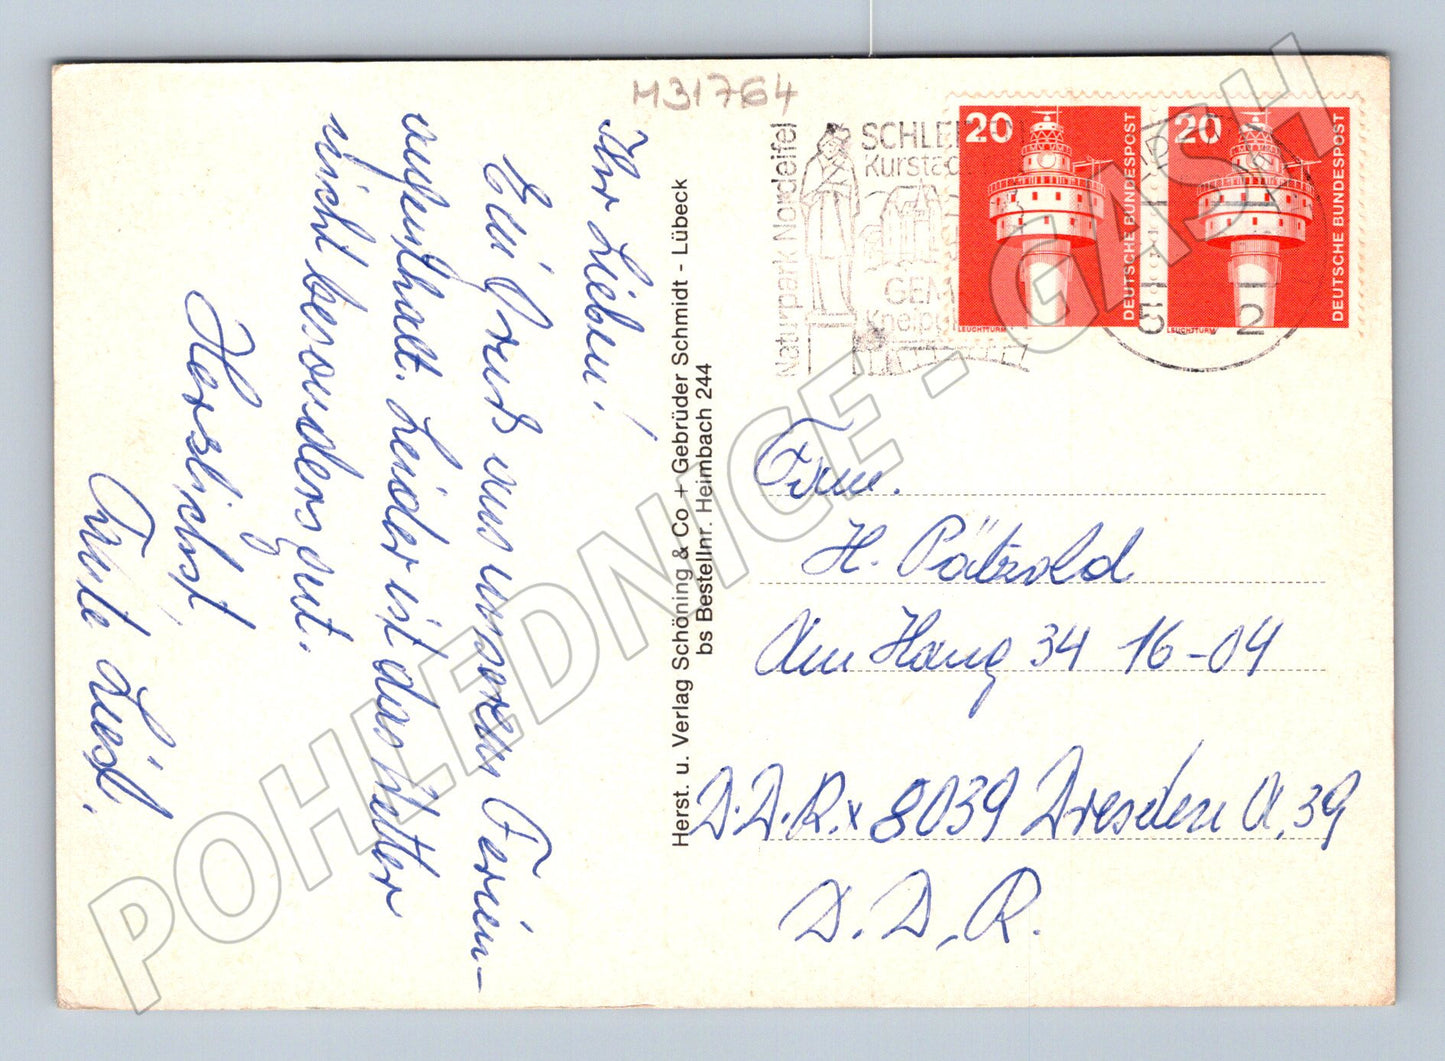 M31764
Ihr Lieben!
Ein Gruß aus unseren Ferien-
aufenthalt. Leider ist das Wetter
nicht besonders gut.
Herzlichst,
Tante Liesl.
Herst. u. Verlag Schöning & Co + Gebrüder Schmidt - Lübeck
bs Bestellnr. Heimbach 244
Naturpark Nordeifel
SCHLEI
Kurstad
GEM
Kneip
20
DEUTSCHE BUNDESPOST
LEUCHTTURM
20
DEUTSCHE BUNDESPOST
LEUCHTTURM
Fam.
H. Pätzold
Am Hang 34 16-04
D.D.R. x 8039 Dresden A. 39
D.D.R.
POHLEDNICE - GASH